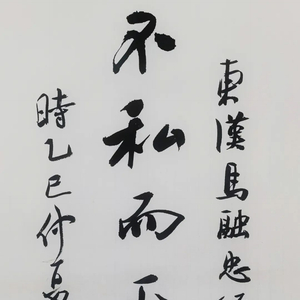 東漢馬融忠
不私而
時乙巳仲